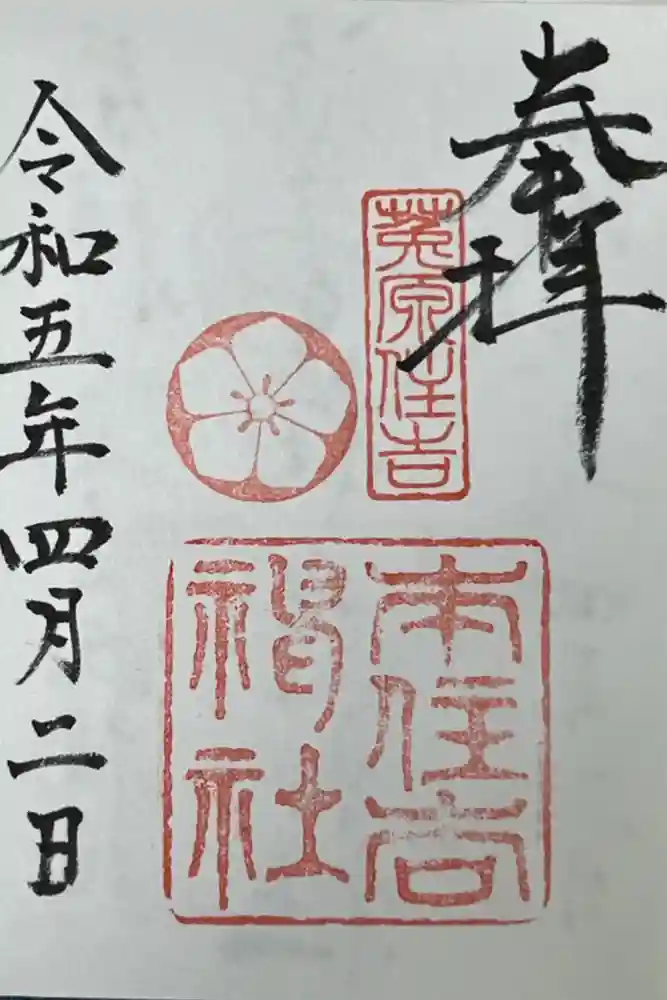 奉拝
菟原住吉
本住吉
神社
令和五年四月二日